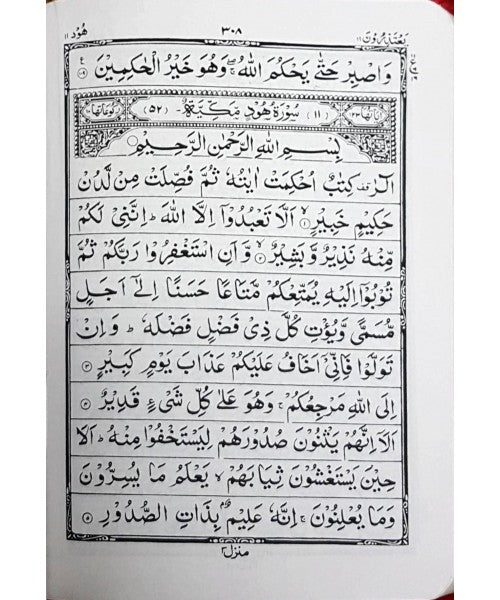 يَعْتَذِرُوْنَ ١١ ٣٠٨ هُوْد ١١
وَاصْبِرْ حَتّٰى يَحْكُمَ اللّٰهُ ۚ وَهُوَ خَيْرُ الْحٰكِمِيْنَ
اٰيَاتُهَا ١٢٣ (١١) سُوْرَةُ هُوْدٍ مَكِّيَّةٌ (٥٢) رُكُوْعَاتُهَا ١٠
بِسْمِ اللّٰهِ الرَّحْمٰنِ الرَّحِيْمِ
الٓرٰ ۟ كِتٰبٌ اُحْكِمَتْ اٰيٰتُهٗ ثُمَّ فُصِّلَتْ مِنْ لَّدُنْ
حَكِيْمٍ خَبِيْرٍ ۙ﴿١﴾ اَلَّا تَعْبُدُوْۤا اِلَّا اللّٰهَ ؕ اِنَّنِيْ لَكُمْ
مِّنْهُ نَذِيْرٌ وَّبَشِيْرٌ ۙ﴿٢﴾ وَّاَنِ اسْتَغْفِرُوْا رَبَّكُمْ ثُمَّ
تُوْبُوْۤا اِلَيْهِ يُمَتِّعْكُمْ مَّتَاعًا حَسَنًا اِلٰۤى اَجَلٍ
مُّسَمًّى وَّيُؤْتِ كُلَّ ذِيْ فَضْلٍ فَضْلَهٗ ؕ وَاِنْ
تَوَلَّوْا فَاِنِّيْۤ اَخَافُ عَلَيْكُمْ عَذَابَ يَوْمٍ كَبِيْرٍ ﴿٣﴾
اِلَى اللّٰهِ مَرْجِعُكُمْ ۚ وَهُوَ عَلٰى كُلِّ شَيْءٍ قَدِيْرٌ ﴿٤﴾
اَلَاۤ اِنَّهُمْ يَثْنُوْنَ صُدُوْرَهُمْ لِيَسْتَخْفُوْا مِنْهُ ؕ اَلَا
حِيْنَ يَسْتَغْشُوْنَ ثِيَابَهُمْ ۙ يَعْلَمُ مَا يُسِرُّوْنَ
وَمَا يُعْلِنُوْنَ ۚ اِنَّهٗ عَلِيْمٌۢ بِذَاتِ الصُّدُوْرِ ﴿٥﴾
منزل ٣